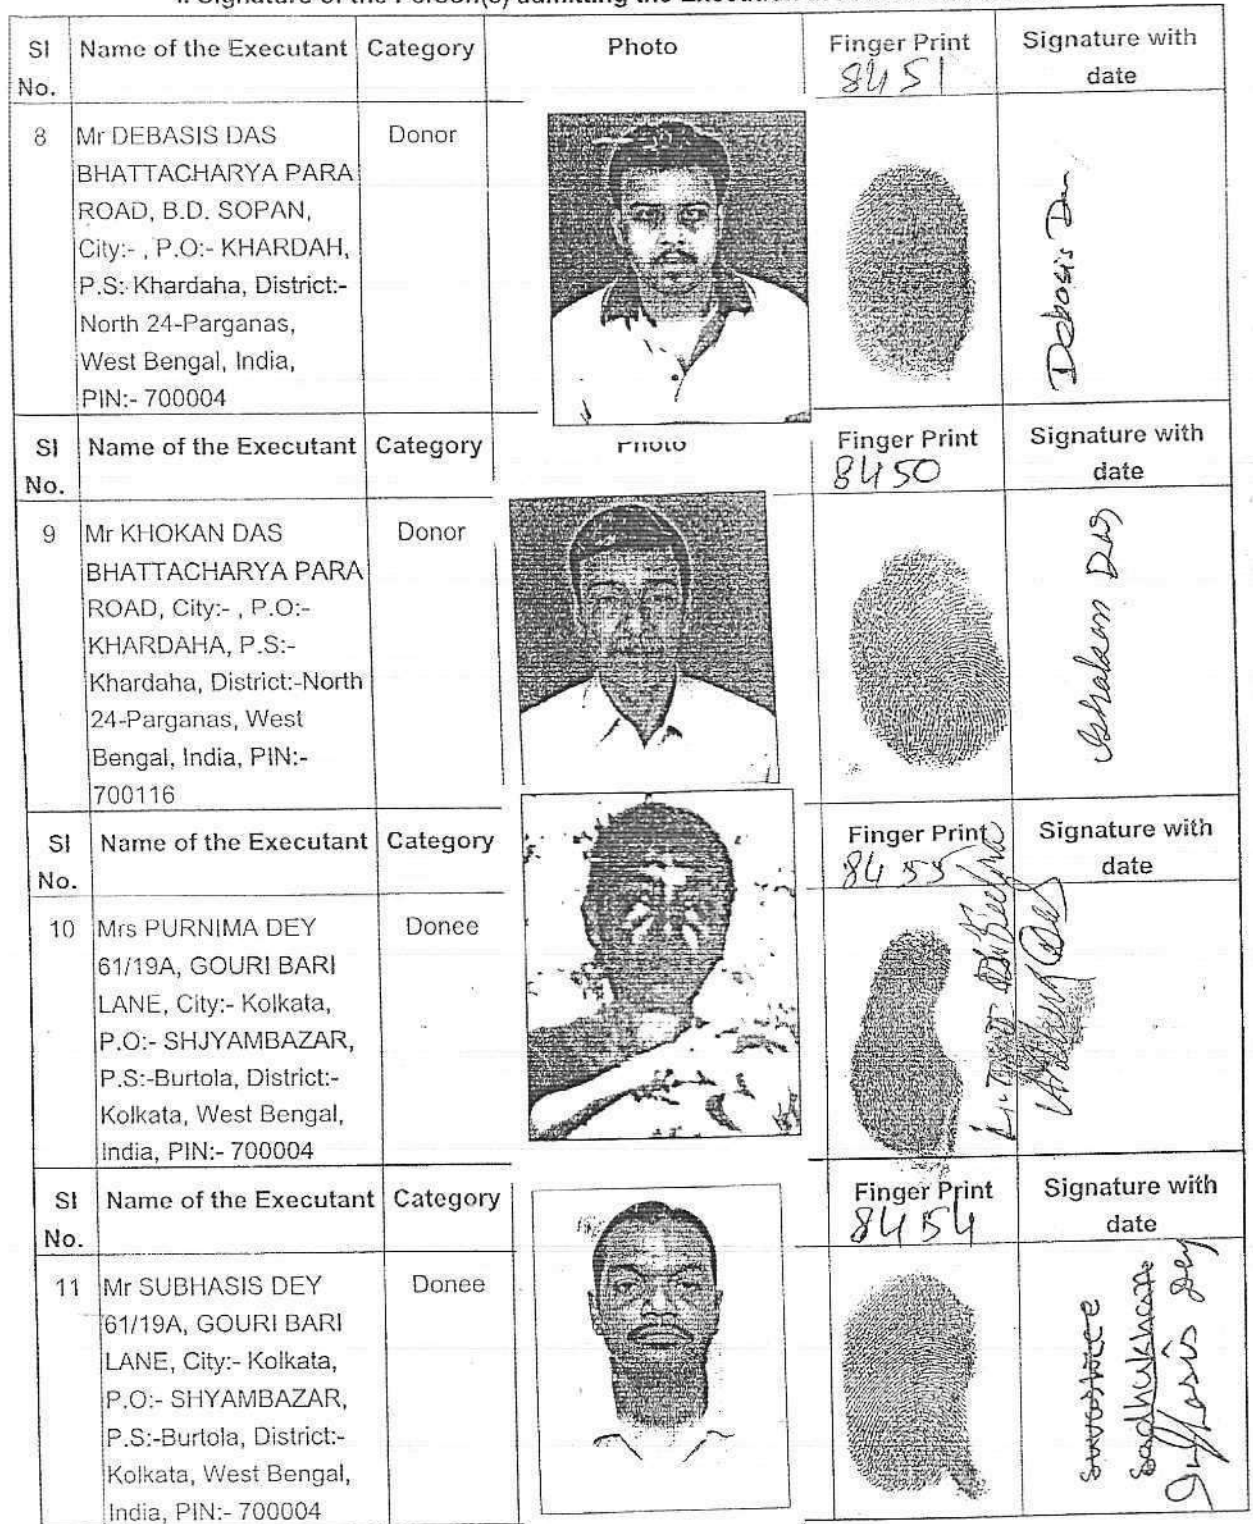 I. Signature of the Person(s) admitting the Execution
Sl No. Name of the Executant Category Photo Finger Print Signature with date
8451
8 Mr DEBASIS DAS Donor
BHATTACHARYA PARA
ROAD, B.D. SOPAN,
City:- , P.O:- KHARDAH,
P.S:- Khardaha, District:-
North 24-Parganas,
West Bengal, India,
PIN:- 700004
Debasis Das
Sl No. Name of the Executant Category Photo Finger Print Signature with date
8450
9 Mr KHOKAN DAS Donor
BHATTACHARYA PARA
ROAD, City:- , P.O:-
KHARDAHA, P.S:-
Khardaha, District:-North
24-Parganas, West
Bengal, India, PIN:-
700116
Khokan Das
Sl No. Name of the Executant Category Finger Print Signature with date
8455
10 Mrs PURNIMA DEY Donee
61/19A, GOURI BARI
LANE, City:- Kolkata,
P.O:- SHJYAMBAZAR,
P.S:-Burtola, District:-
Kolkata, West Bengal,
India, PIN:- 700004
Sl No. Name of the Executant Category Finger Print Signature with date
8454
11 Mr SUBHASIS DEY Donee
61/19A, GOURI BARI
LANE, City:- Kolkata,
P.O:- SHYAMBAZAR,
P.S:-Burtola, District:-
Kolkata, West Bengal,
India, PIN:- 700004
Sadhukhan
Subhasis Dey